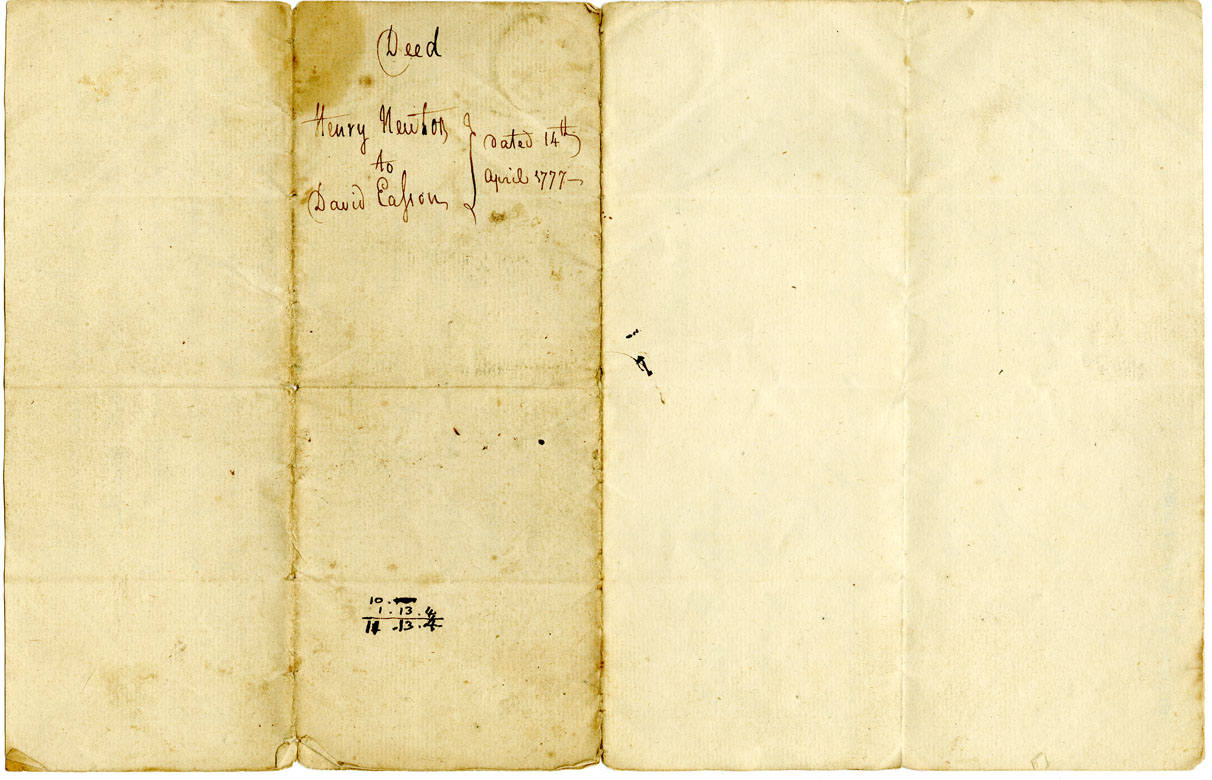 Deed
Henry Newton
to
David Eaſson
Dated 14th
April 1777
10.
1.13.4
11.13.4